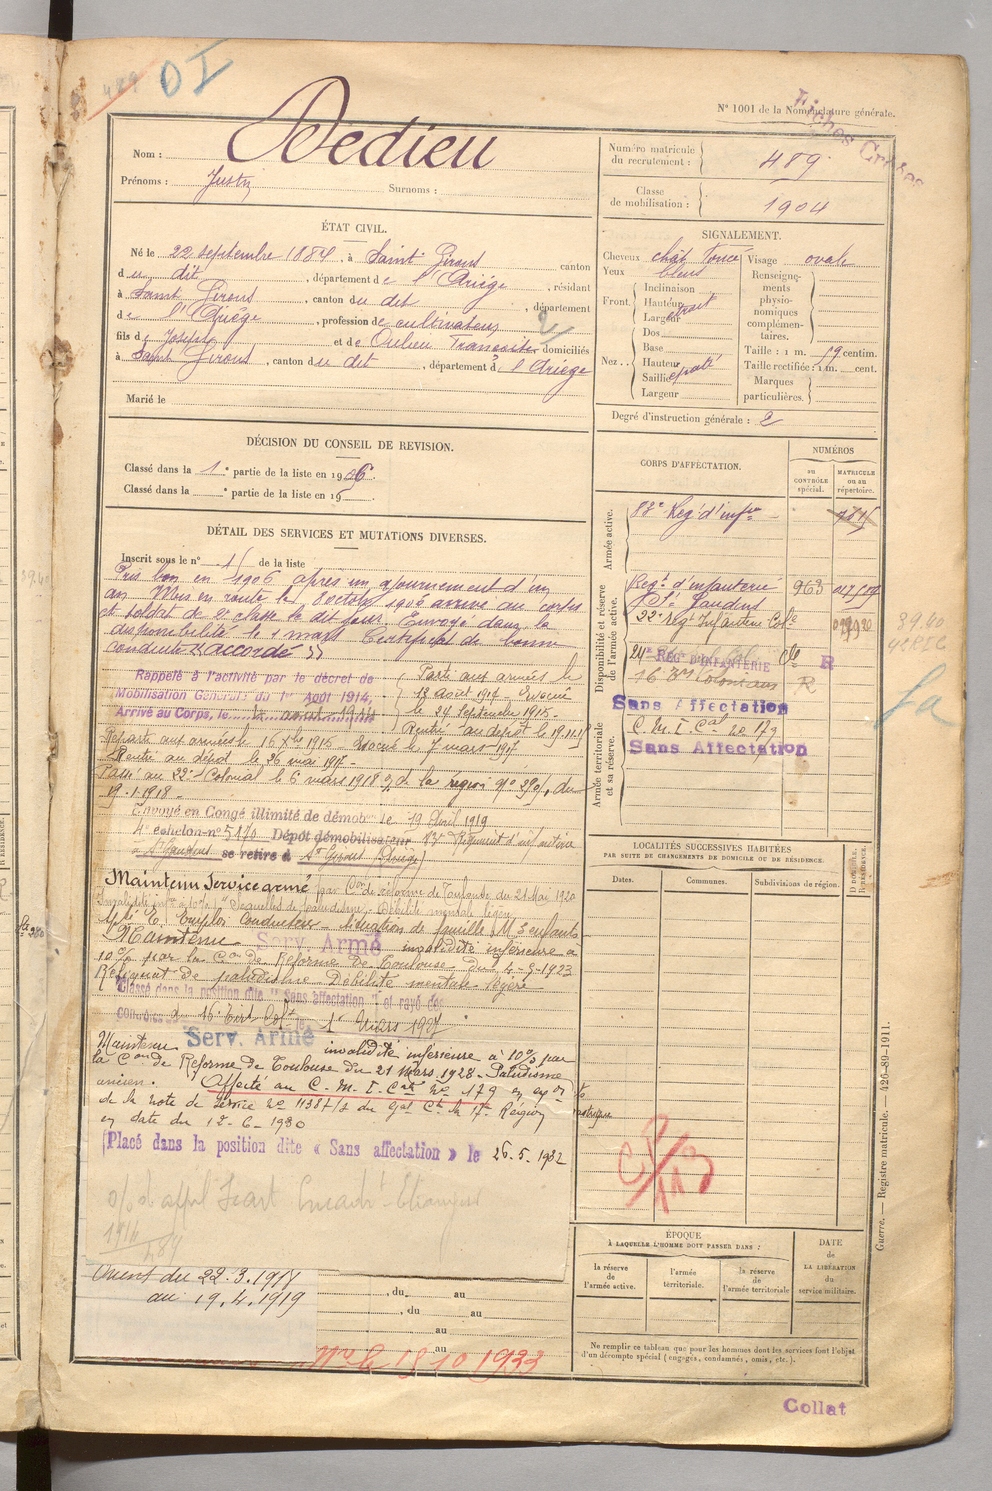 489
OI
N° 1001 de la Nomenclature générale.
Fiches Créées
Nom : Dedieu
Prénoms : Justin Surnoms :
Numéro matricule du recrutement : 489
Classe de mobilisation : 1904
ÉTAT CIVIL.
Né le 22 septembre 1884, à Saint Girons canton
du dit, département de l'Ariège, résidant
à Saint Girons, canton du dit, département
de l'Ariège, profession de cultivateur
fils de Joseph et de domiciliés
à Saint Girons, canton du dit, département d l'Ariège
Marié le
SIGNALEMENT.
Cheveux chât foncé
Yeux bleus
Front. Inclinaison
Hauteur
Largeur
Nez. Dos
Base
Hauteur
Saillie
Largeur
Visage ovale
Renseignements physionomiques complémentaires.
Taille : 1 m. 59 centim.
Taille rectifiée : 1 m. cent.
Marques particulières.
Degré d'instruction générale : 2
DÉCISION DU CONSEIL DE REVISION.
Classé dans la 1e partie de la liste en 1906.
Classé dans la e partie de la liste en 19
DÉTAIL DES SERVICES ET MUTATIONS DIVERSES.
Inscrit sous le n° de la liste
Pris bon en 1906 après un ajournement d'un
an Mis en route le 8 octob 1906 arrivé au corps
et soldat de 2e classe le dit jour. Envoyé dans la
disponibilité le 1 mars Certificat de bonne
conduite "accordé"
Rappelé à l'activité par le décret de
Mobilisation Générale du 1er Août 1914,
Arrivé au Corps, le
Parti aux armées le
12 août 1914 - Evacué
le 27 Septembre 1915.
Rentré au dépôt le 19.11.15
Reparti aux armées le 16 Xbre 1915 - Evacué le 7 mars 1917
Rentré au dépôt le 26 mai 1917 -
Passé au 22e Colonial le 6 mars 1918 de la région n° du
19.1.1918 -
Envoyé en Congé illimité de démob. le 19 Avril 1919
4e échelon n° 5170 Dépôt démobilisateur Régiment d'infanterie
à St Gaudens se retire à St Girons (Ariège)
Maintenu Service armé par Con de réforme de Toulouse du 21 Mai 1920
Invalidité inf à 10 % 1° Séquelles de paludisme. Débilité mentale légère
Emploi Conducteur - situation de famille M 3 enfants
Maintenu Serv. Armé invalidité inférieure à
10 % par la Con de Réforme de Toulouse du 4-9-1923
Reliquat de paludisme - Débilité mentale légère
Classé dans la position dite "Sans affectation" et rayé des
contrôles du 16e Tirt Colx le 1er Mars 1927
Maintenu Serv. Armé invalidité inférieure à 10 % par
la Con de Réforme de Toulouse du 21 Mars 1928 - Paludisme
ancien. Affecté au C. M. I. Cale N° 179 en exon
de la note de service N° 1138 du Gal Ct la 17e Région
en date du 12-6-1930
Placé dans la position dite « Sans affectation » le 26.5.1932
Orient du 22.3.1917
au 19.4.1919
, du au
, du au
au
au
18 10 1933
CORPS D'AFFECTATION.
NUMÉROS
AU CONTRÔLE spécial.
MATRICULE ou au répertoire.
Armée active.
83e Reg. d'infrie
Disponibilité et réserve de l'armée active.
Regt d'infanterie St Gaudens 963
22e régt Infanterie Colle
24e REGt D'INFANTERIE Cle R
16 Colonians R
Sans Affectation
Armée territoriale et sa réserve.
C. M. I. Cal N° 179
Sans Affectation
LOCALITÉS SUCCESSIVES HABITÉES
PAR SUITE DE CHANGEMENTS DE DOMICILE OU DE RÉSIDENCE.
Dates. Communes. Subdivisions de région.
D DOMICILE. R RÉSIDENCE.
ÉPOQUE
À LAQUELLE L'HOMME DOIT PASSER DANS :
la réserve de l'armée active.
l'armée territoriale.
la réserve de l'armée territoriale
DATE de LA LIBÉRATION du service militaire.
Ne remplir ce tableau que pour les hommes dont les services font l'objet d'un décompte spécial (engagés, condamnés, omis, etc.).
Guerre. — Registre matricule. — 426-89-1911.
Collat